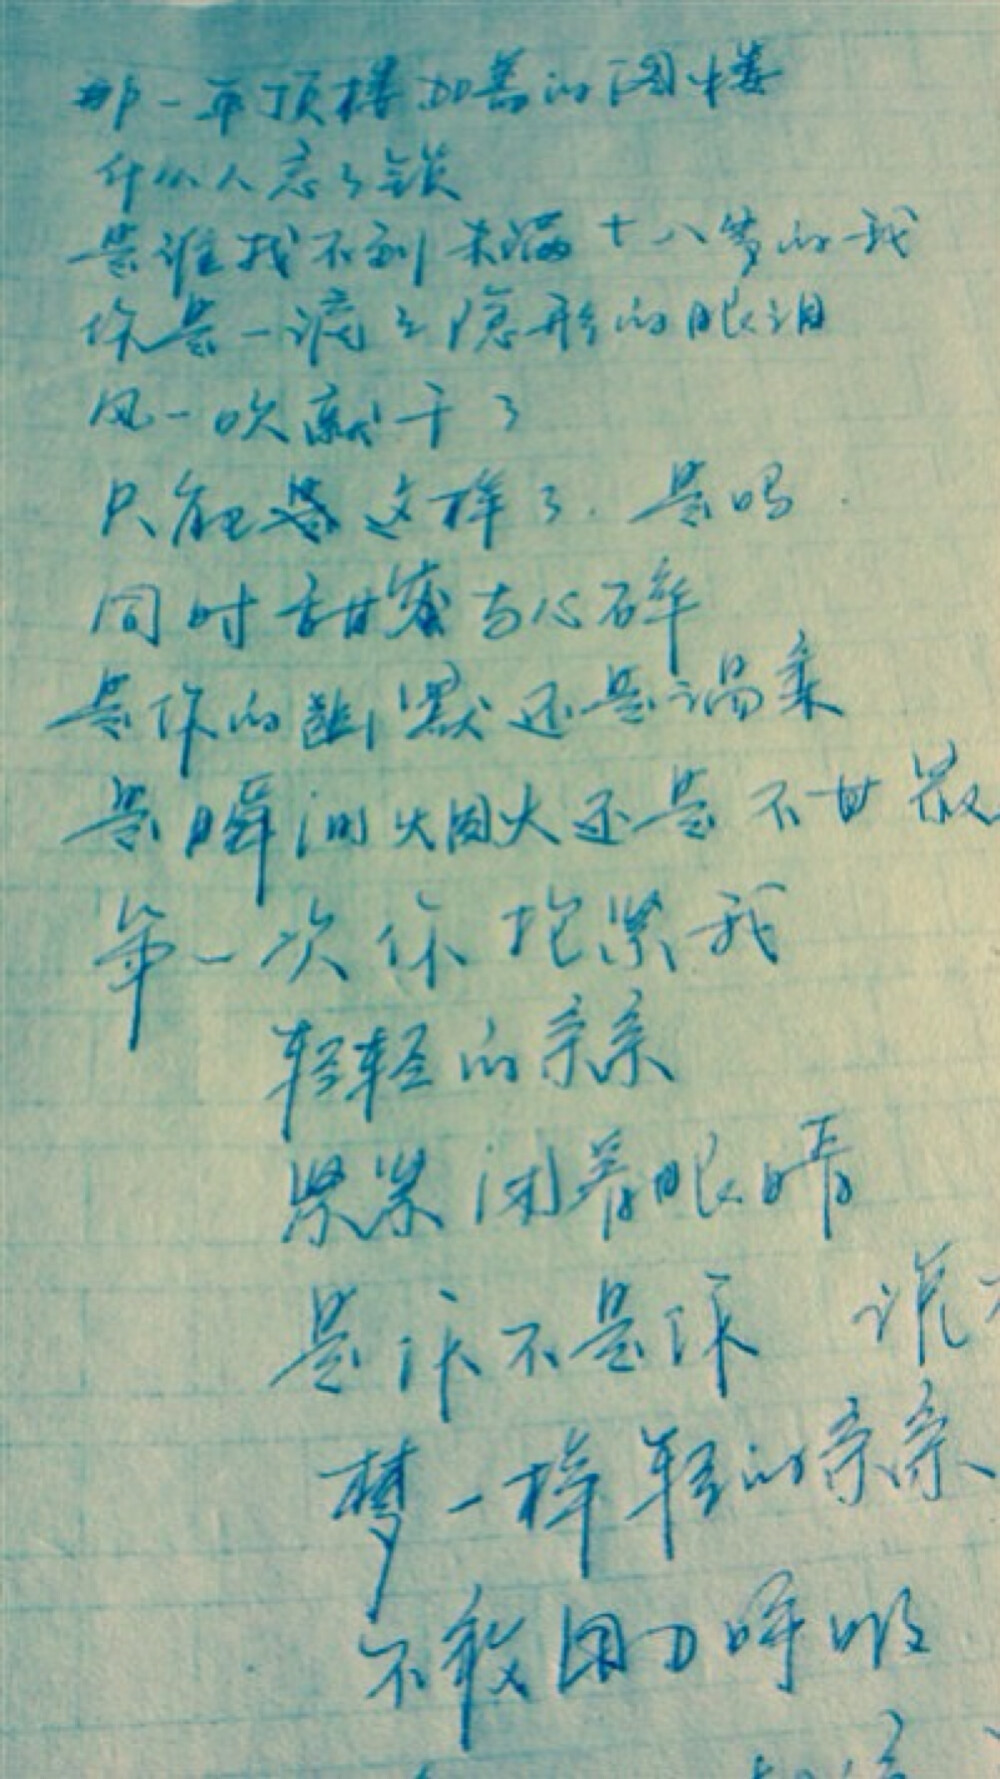 那一年顶楼加盖的阁楼
什么人忘了锁
是谁找不到未满十八岁的我
你是一滴滴隐形的眼泪
风一吹就干了
只能是这样了.是吗.
同时甜蜜与心碎
是你的幽默还是温柔
是瞬间烟火还是不甘寂
每一次你抱紧我
轻轻的亲亲
紧紧闭着眼睛
是你不是你 说
梦一样轻的亲亲
不敢用力呼吸